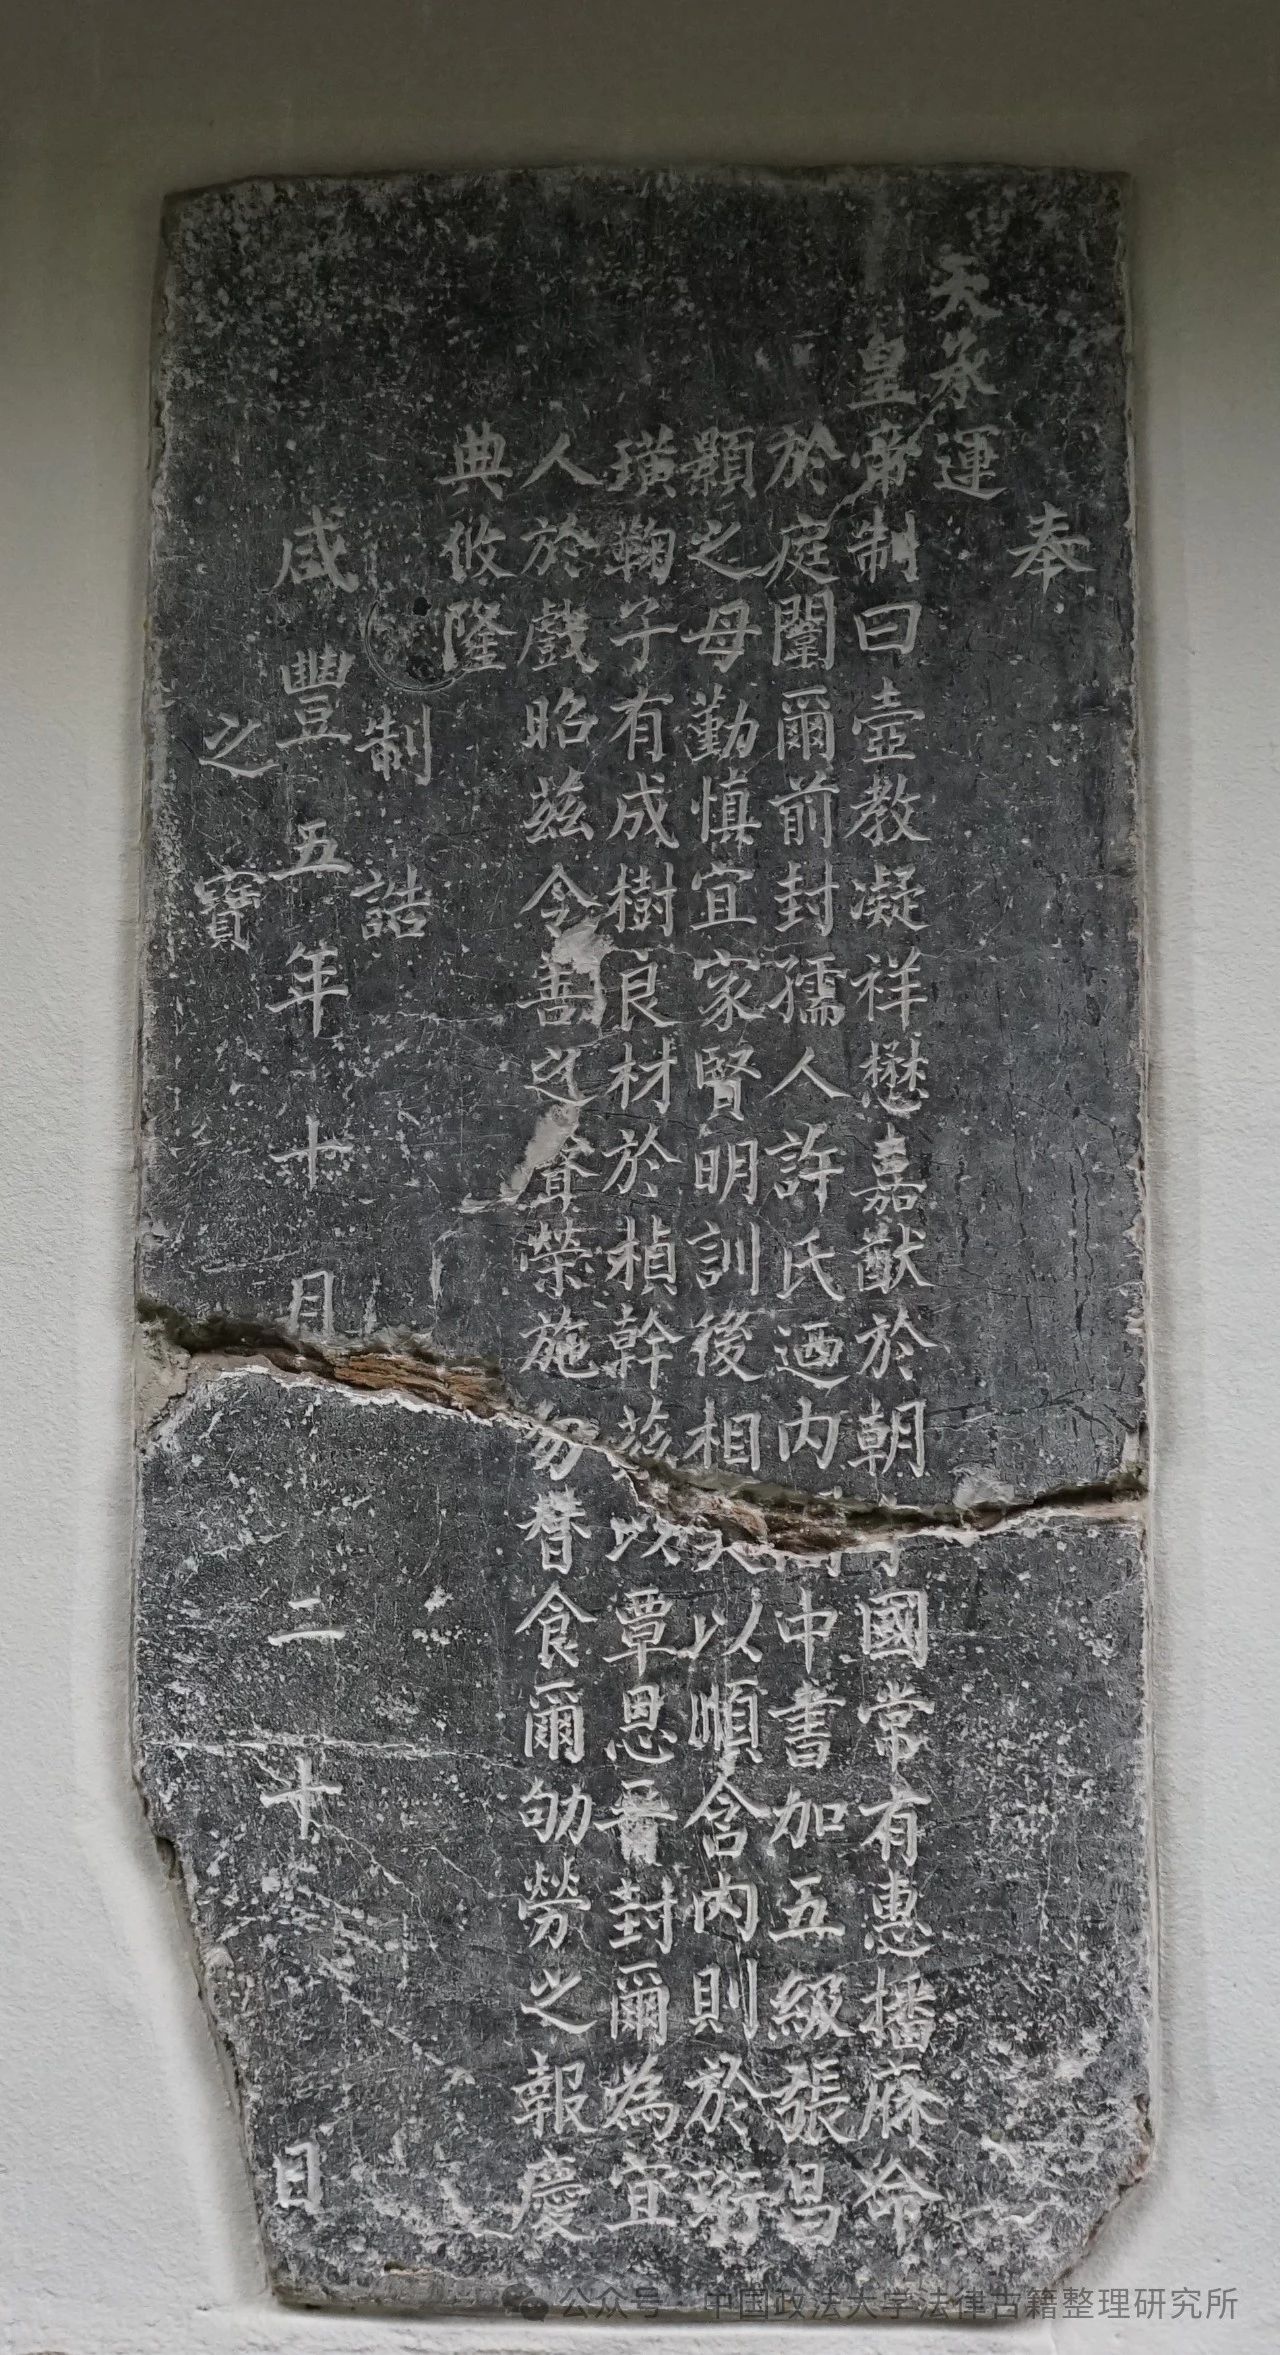 奉
天承運
皇帝制曰壼教凝祥懋嘉猷於朝國常有惠播庥命
於庭闈爾前封孺人許氏迺內中書加五級張昌
顯之母勤慎宜家賢明訓後相夫以順含內則於珩
璜鞠子有成樹良材於楨幹茲以覃恩晉封爾為宜
人於戲昭茲令善之聲榮施勿替食爾劬勞之報慶
典攸隆
制誥
咸豐五年十月二十日
之寶
公众号·中国政法大学法律古籍整理研究所